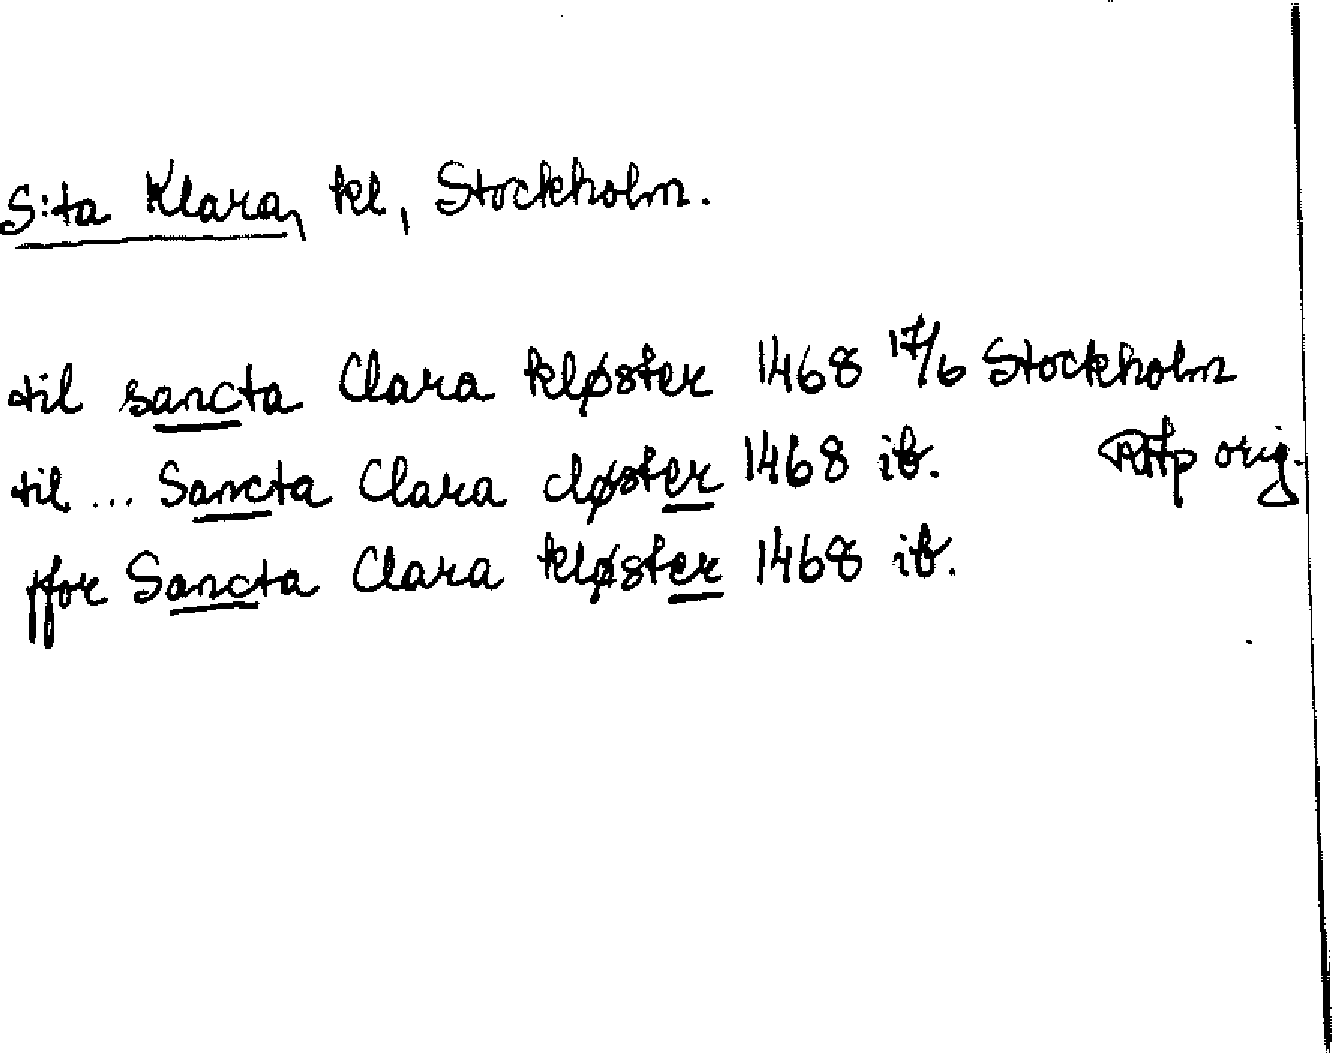 S:ta Klara, kl, Stockholm.
til sancta Clara kløster 1468 17/6 Stockholm
til ... Sancta Clara cløster 1468 ib. RAp orig.
ffor Sancta Clara kløster 1468 ib.